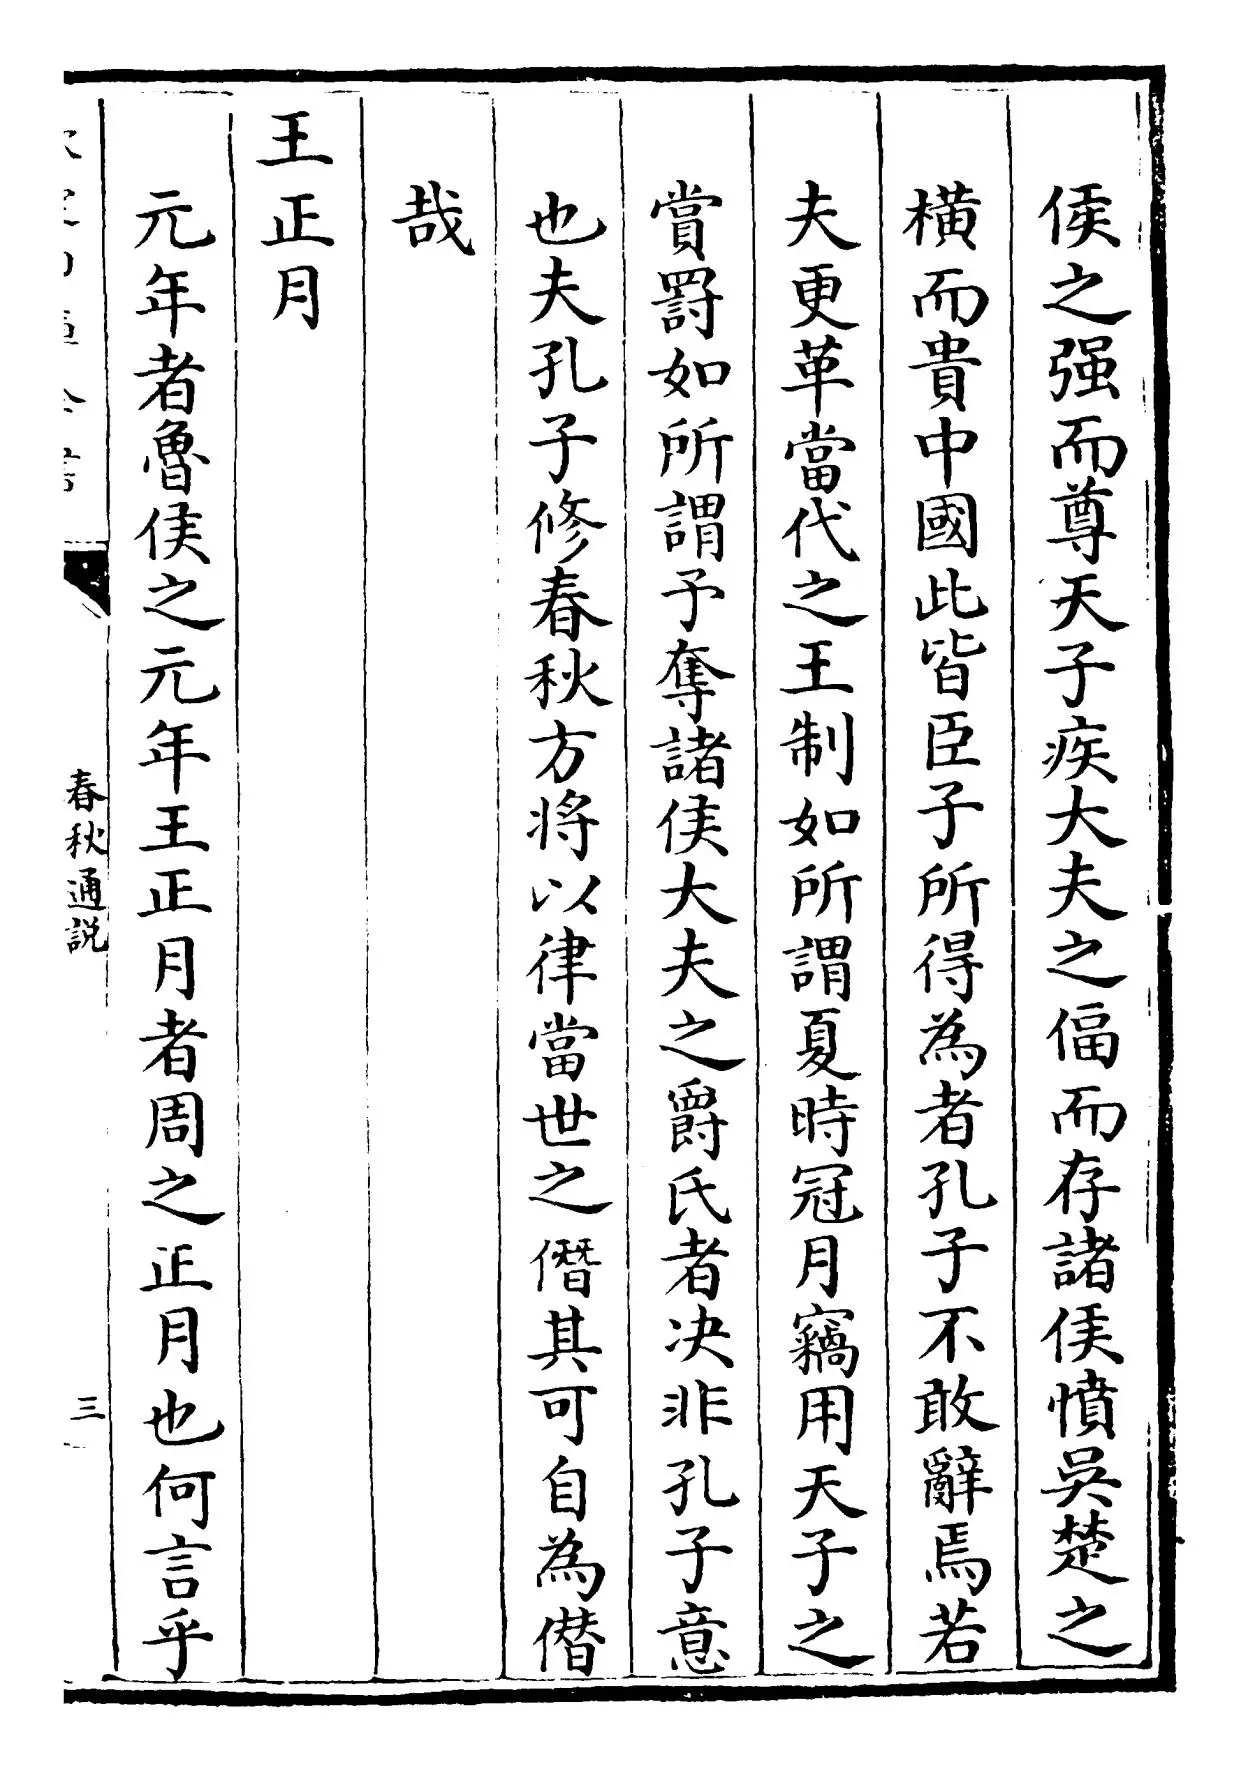 侯之强而尊天子疾大夫之偪而存諸侯憤吳楚之
橫而貴中國此皆臣子所得為者孔子不敢辭焉若
夫更革當代之王制如所謂夏時冠月竊用天子之
賞罰如所謂予奪諸侯大夫之爵氏者决非孔子意
也夫孔子修春秋方將以律當世之僭其可自為僭
哉
王正月
元年者魯侯之元年王正月者周之正月也何言乎
春秋通説
三